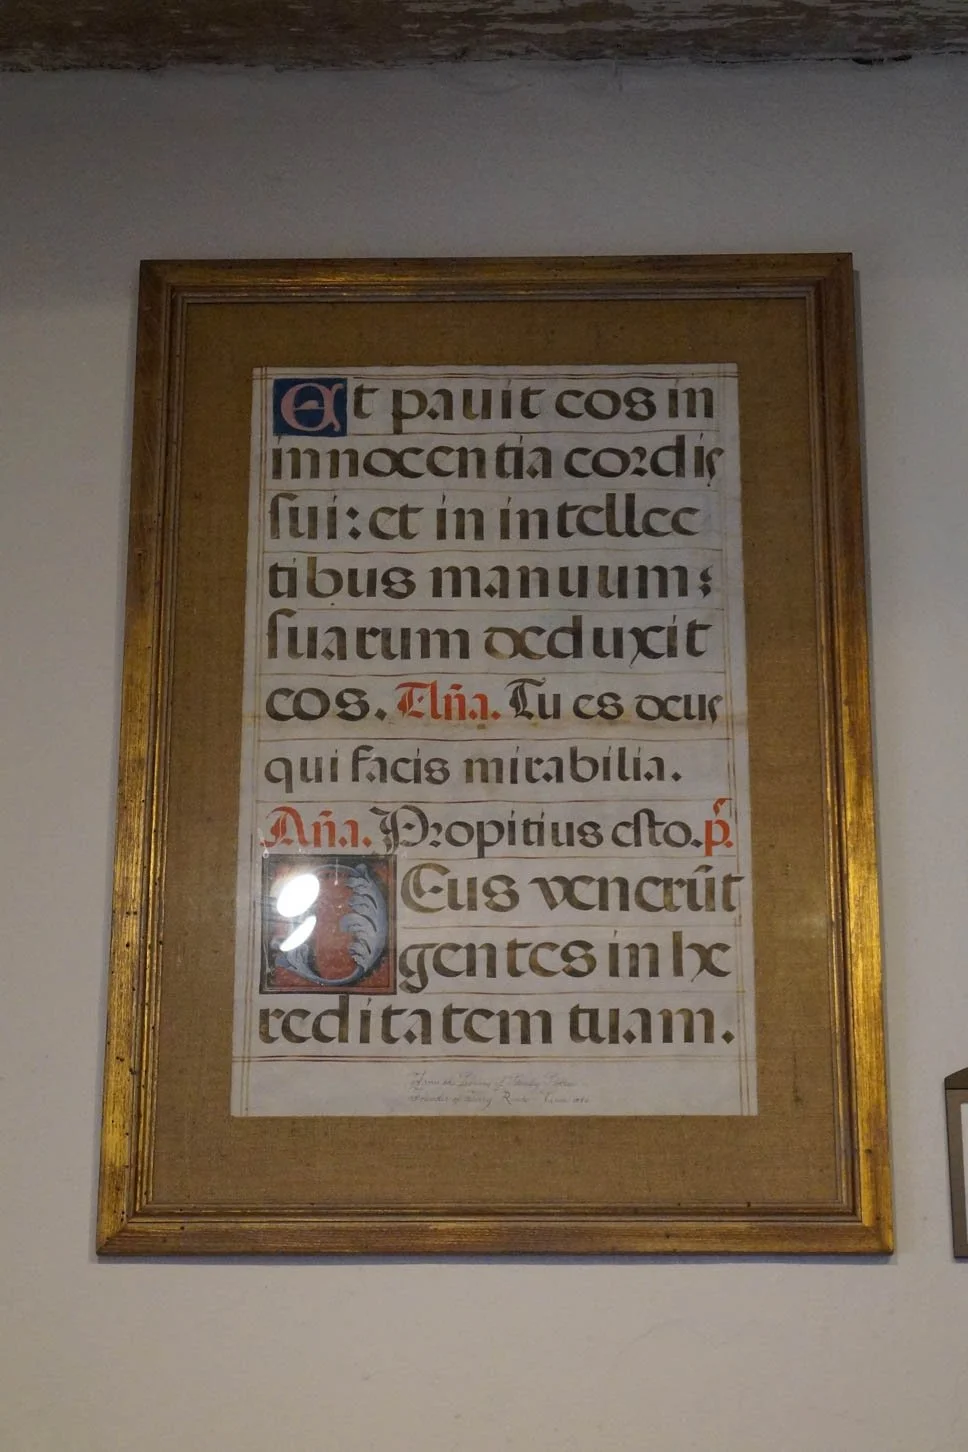 Et pauit eos in
innocentia cordis
sui: et in intellec
tibus manuum
suarum deduxit
eos. Aña. Tu es deus
qui facis mirabilia.
Aña. Propitius esto. p̃.
DEus venerũt
gentes in he
reditatem tuam.